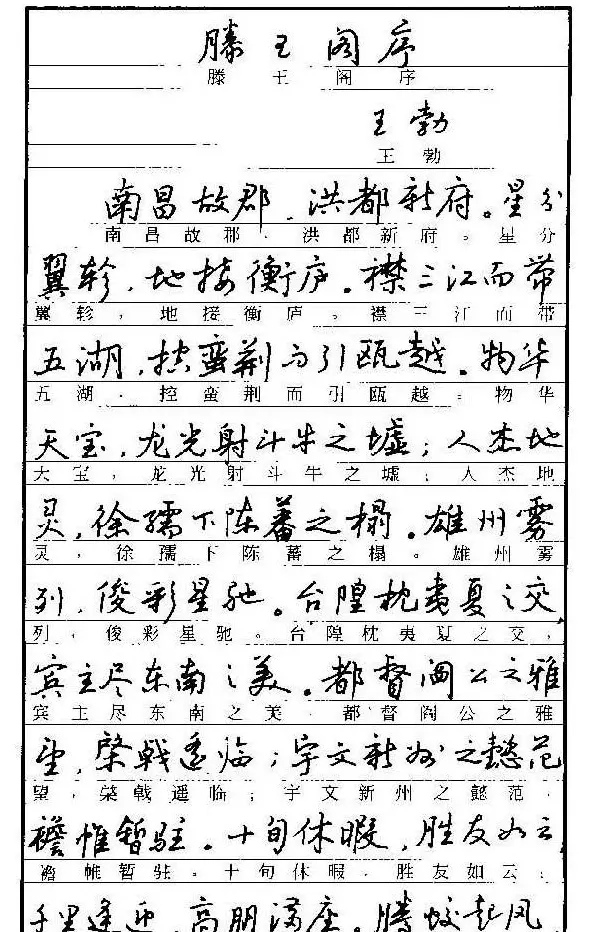 滕王阁序
滕王阁序
王勃
王勃
南昌故郡，洪都新府。星分
南昌故郡，洪都新府。星分
翼轸，地接衡庐。襟三江而带
翼轸，地接衡庐。襟三江而带
五湖，控蛮荆而引瓯越。物华
五湖，控蛮荆而引瓯越。物华
天宝，龙光射斗牛之墟；人杰地
天宝，龙光射斗牛之墟；人杰地
灵，徐孺下陈蕃之榻。雄州雾
灵，徐孺下陈蕃之榻。雄州雾
列，俊彩星驰。台隍枕夷夏之交，
列，俊彩星驰。台隍枕夷夏之交，
宾主尽东南之美。都督阎公之雅
宾主尽东南之美。都督阎公之雅
望，棨戟遥临；宇文新州之懿范，
望，棨戟遥临；宇文新州之懿范，
襜帷暂驻。十旬休暇，胜友如云；
襜帷暂驻。十旬休暇，胜友如云；
千里逢迎，高朋满座。腾蛟起凤，